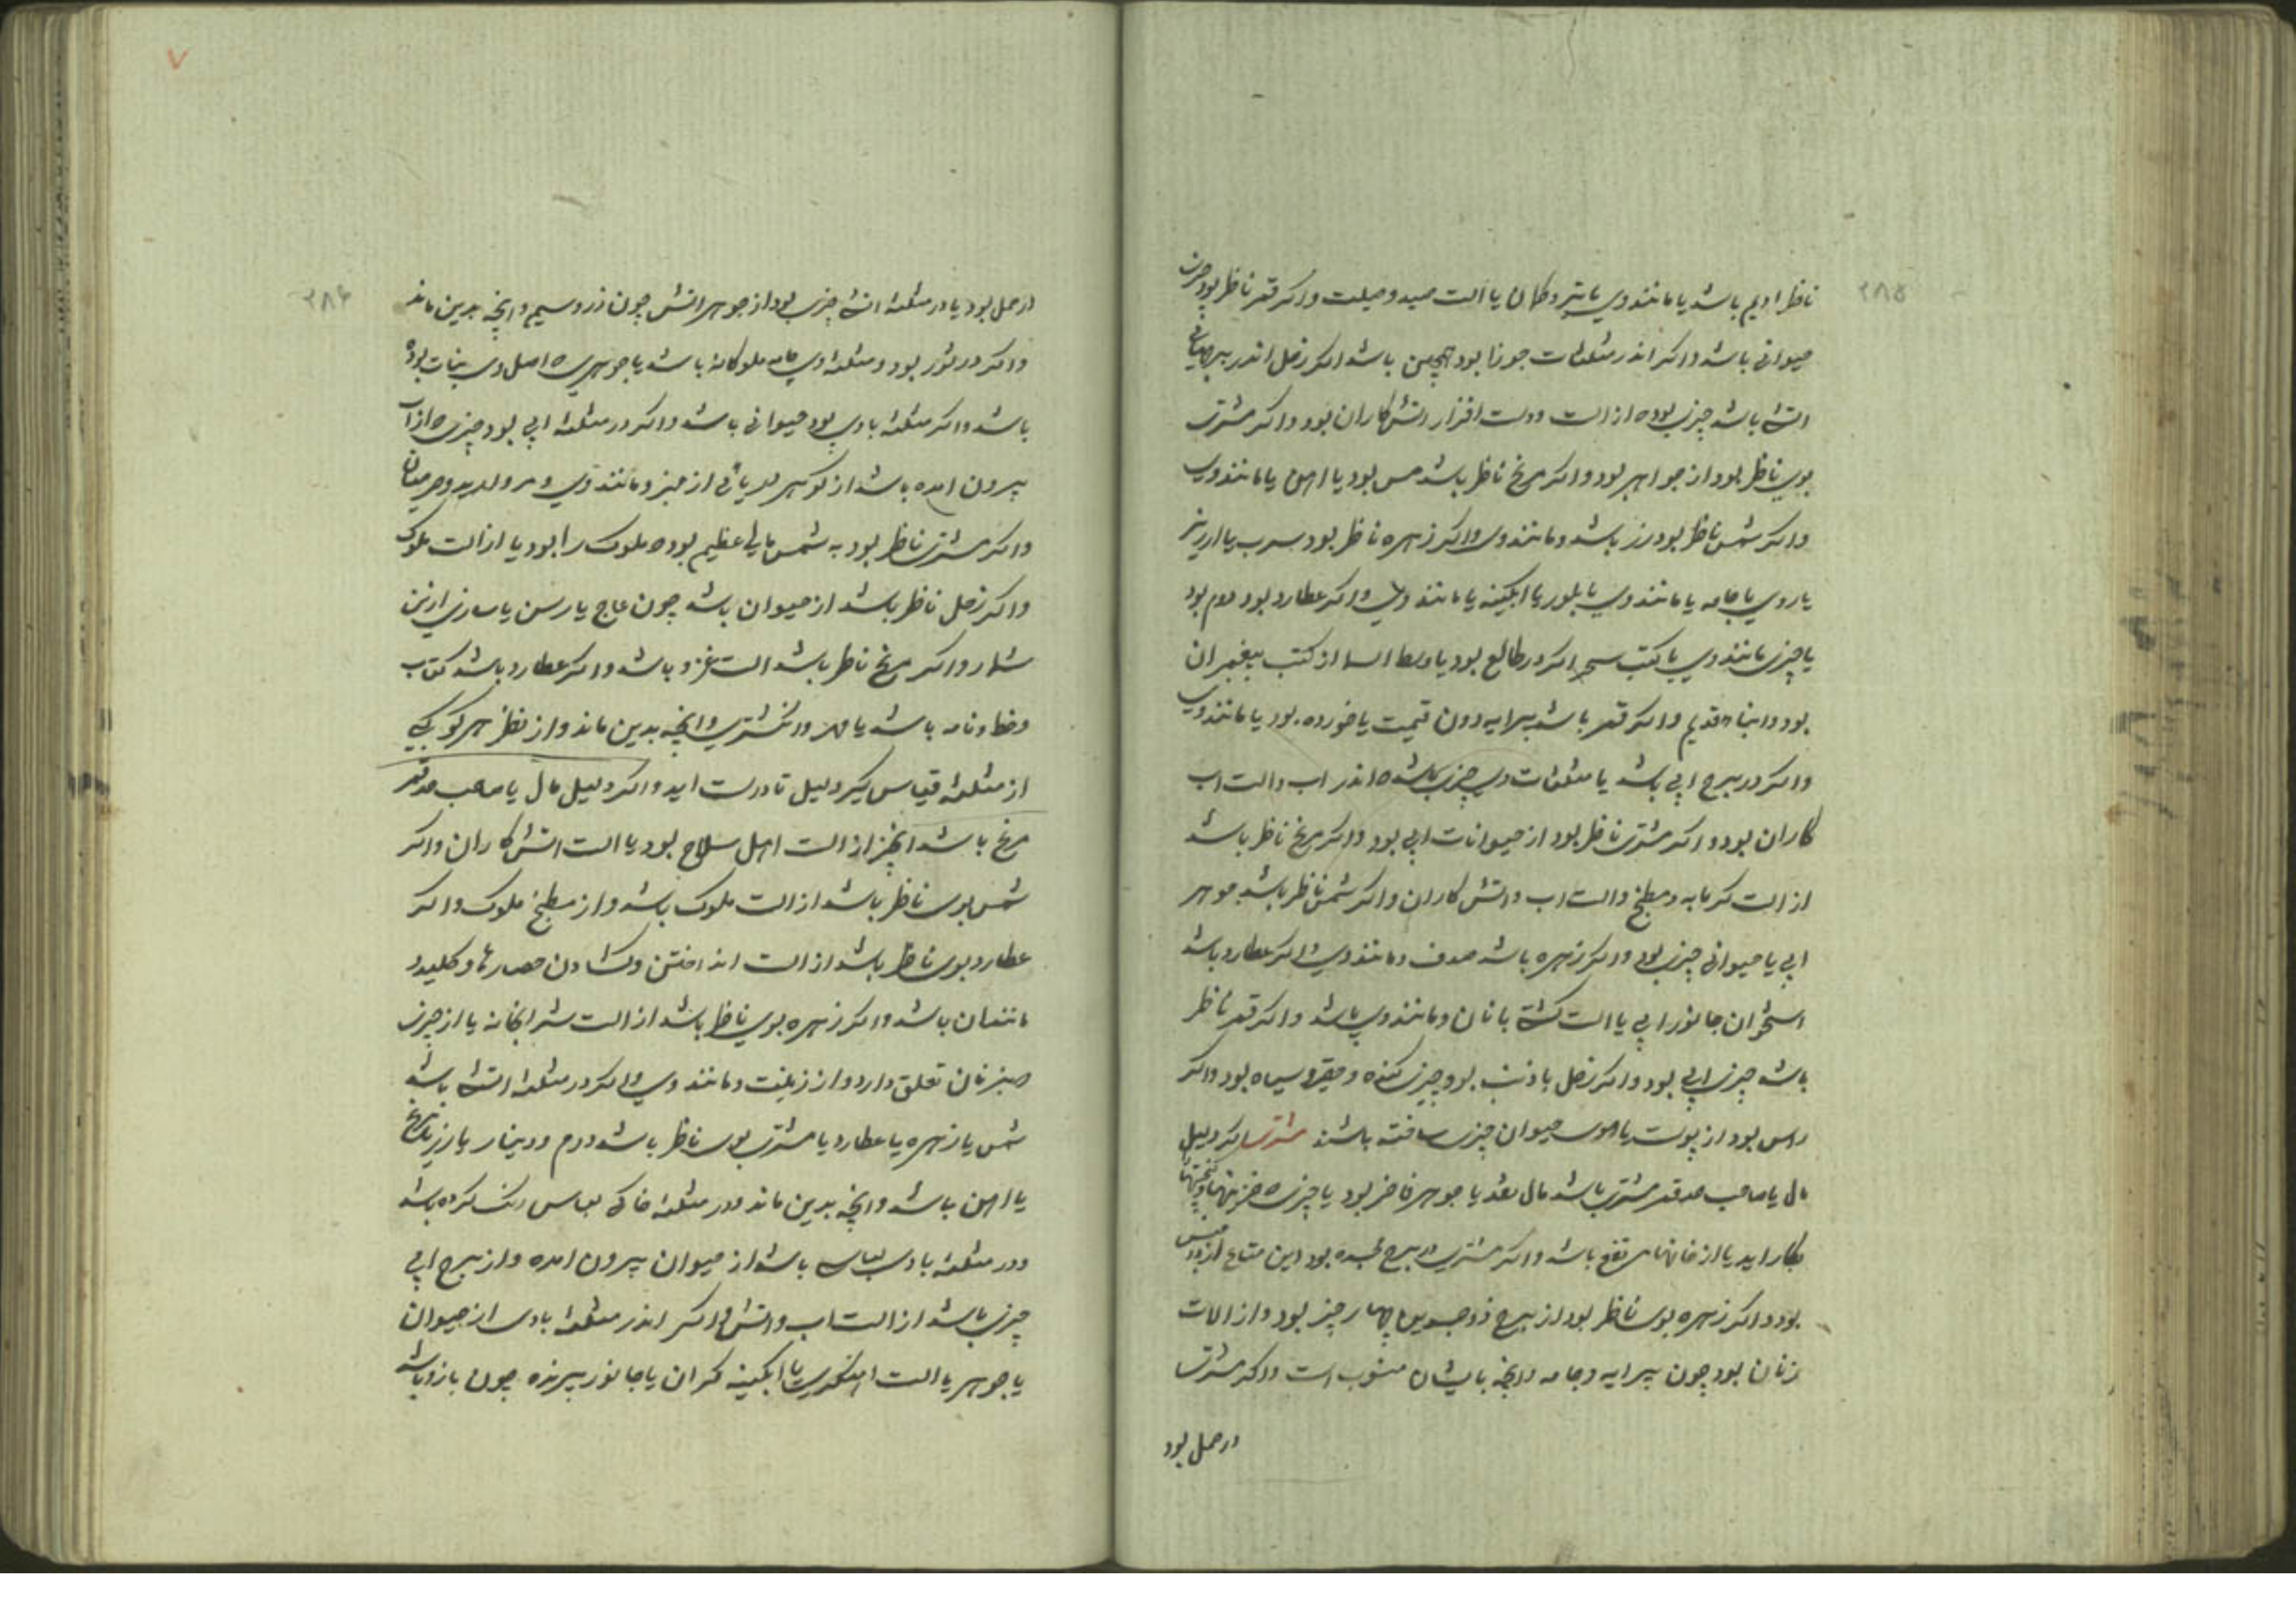 ۲۸۵
ناظر ادیم باشد یا مانند وی یا تیر و کمان یا الت صید و حیلت و اکر قمر ناظر بود چیزی
حیوانی باشد و اکر اندر مثلثات جوزا بود همچنین باشد اکر زحل اندر برجهای
اتشی باشد چیزی بود ه از الت و دست افزار اتش کاران بود و اکر مشتری
بوی ناظر بود از جواهر بود و اکر مریخ ناظر باشد مس بود یا اهن یا مانند وی
و اکر شمس ناظر بود زر باشد و مانند وی و اکر زهره ناظر بود سرب یا ارزیز
یا روی یا جامه یا مانند وی یا بلور یا ابکینه یا مانند وی و اکر عطارد بود درم بود
یا چیزی مانند وی یا کتب سحر اکر در طالع بود یا وسط السما از کتب پیغمبران
بود و ابناء قدیم و اکر قمر باشد پیرایه دون قیمت یا خورده بود یا مانند وی
و اکر در برج ابی باشد یا مثلثات وی چیزی باشد ه اندر اب و الت اب
کاران بود و اکر مشتری ناظر بود از حیوانات ابی بود و اکر مریخ ناظر باشد
از الت کرمابه و مطبخ و الت اب و اتش کاران و اکر شمس ناظر باشد جوهر
ابی یا حیوانی چیزی بود و اکر زهره باشد صدف و مانند وی و اکر عطارد باشد
استخوان جانور ابی یا الت کشتی بانان و مانند وی باشد و اکر قمر ناظر
باشد چیزی ابی بود و اکر زحل با ذنب بود چیزی کنده و حقیر و سیاه بود و اکر
راس بود از پوست یا موی حیوان چیزی ساخته باشند مشتری اکر دلیل
مال یا صاحب صد قمر مشتری باشد مال نقد یا جوهر فاخر بود یا چیزی ه خزینها و کنجها
بکار اید یا از خانهای مرتفع باشد و اکر مشتری در برج بود این متاع از
بود و اکر زهره بوی ناظر بود از برج ذوجسدین چهار چیز بود و از الات
زنان بود چون پیرایه و جامه و انچه بایشان منسوب است و اکر مشتری
در حمل بود
۲۸۶
در حمل بود یا در مثلثه اتشی چیزی بود از جوهر اتش چون زر و سیم و انچه بدین ماند
و اکر در ثور بود و مثلثه وی جامه ملوکانه باشد یا جوهری ه اصل وی نبات بوده
باشد و اکر مثلثه بادی بود حیوانی باشد و اکر در مثلثه ابی بود چیزی ه از اب
بیرون امده باشد از کوهر دریائی از عنبر و مانند وی و مروارید و مرجان
و اکر مشتری ناظر بود به شمس مالی عظیم بود ه ملوک را بود یا از الت ملوک
و اکر زحل ناظر باشد از حیوان باشد چون عاج یا رسن یا سازی از تن
و اکر مریخ ناظر باشد الت غزو باشد و اکر عطارد باشد کتاب
و خط و نامه باشد یا مهر و انکشتری و انچه بدین ماند و از نظر هر کوکبی
از مثلثه قیاس کیر دلیل تا درست اید و اکر دلیل مال یا صاحب حد قمر
مریخ باشد انچیز از الت اهل سلاح بود یا الت اتش کاران و اکر
شمس بوی ناظر باشد از الت ملوک باشد و از مطبخ ملوک و اکر
عطارد بوی ناظر باشد از الت انداختن و کشادن حصارها و کلید و
مانند ان باشد و اکر زهره بوی ناظر باشد از الت شرابخانه یا از چیزی
ه بزنان تعلق دارد و از زینت و مانند وی و اکر در مثلثه اتشی باشد
شمس یا زهره یا عطارد یا مشتری بوی ناظر باشد درم و دینار یا زر یا مریخ
یا اهن باشد و انچه بدین ماند و در مثلثه خاکی لباس رنک کرده باشد
و در مثلثه بادی لباسی باشد از حیوان بیرون امده و از برج ابی
چیزی باشد از الت اب و اتش و اکر اندر مثلثه بادی از حیوان
یا جوهر یا الت یا ابکینه کران یا جانور پرنده چون باز و باشه